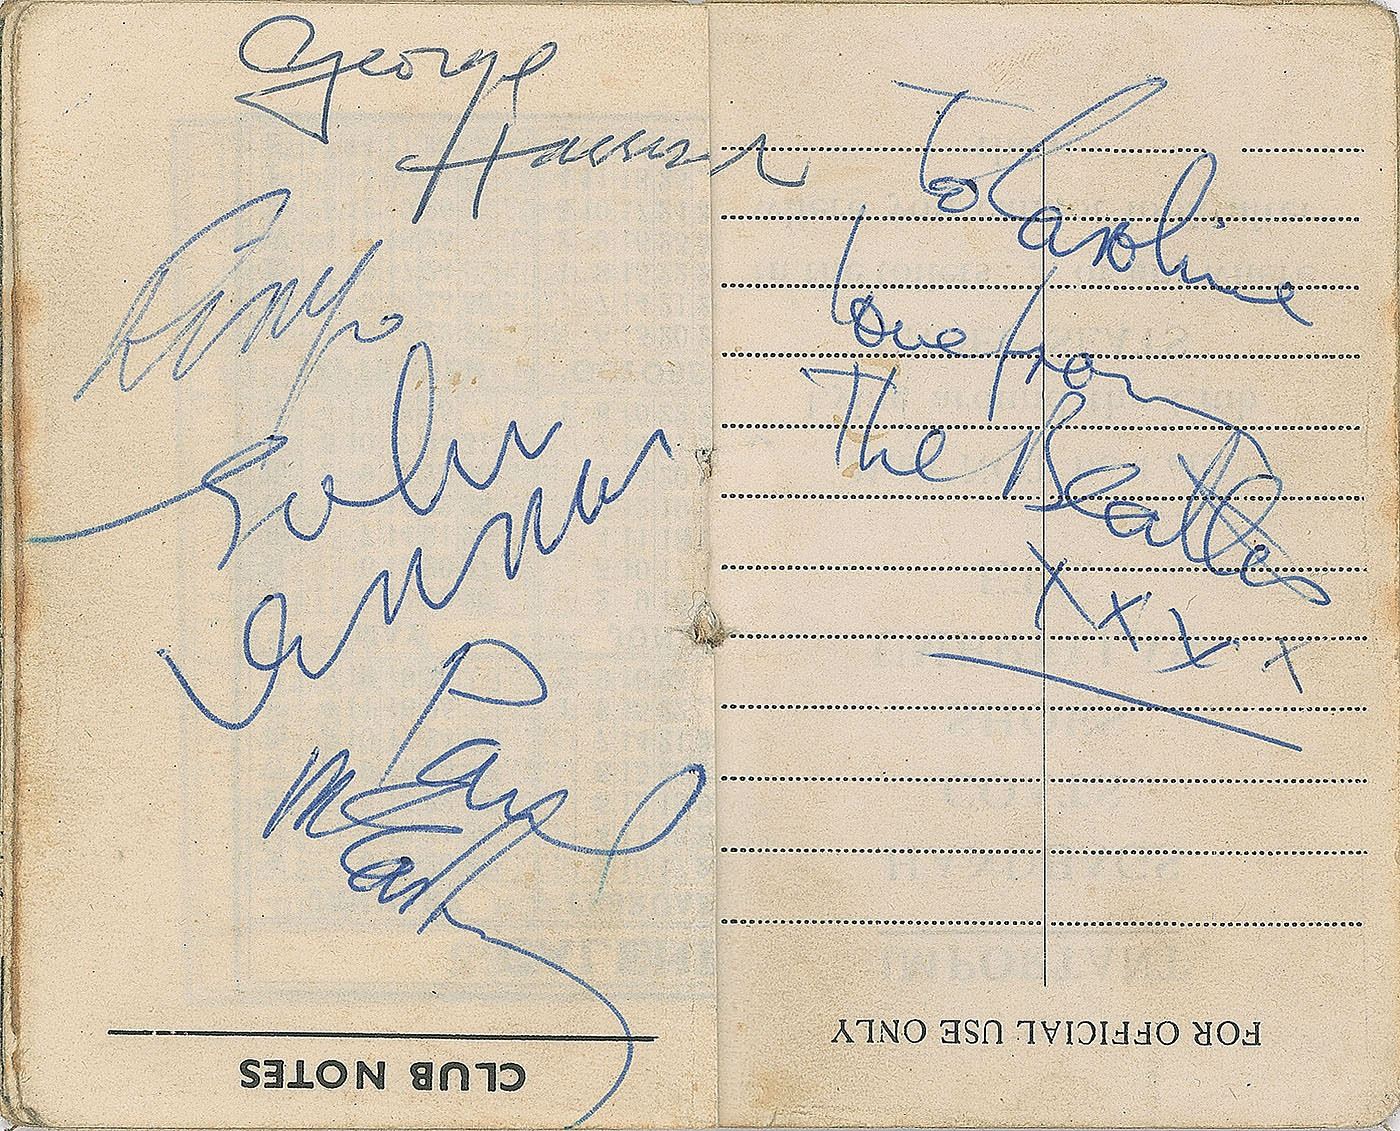 George
Harrison
Ringo
John
Lennon
Paul
McCartney
CLUB NOTES
To Caroline
love from
The Beatles
xxxx
FOR OFFICIAL USE ONLY